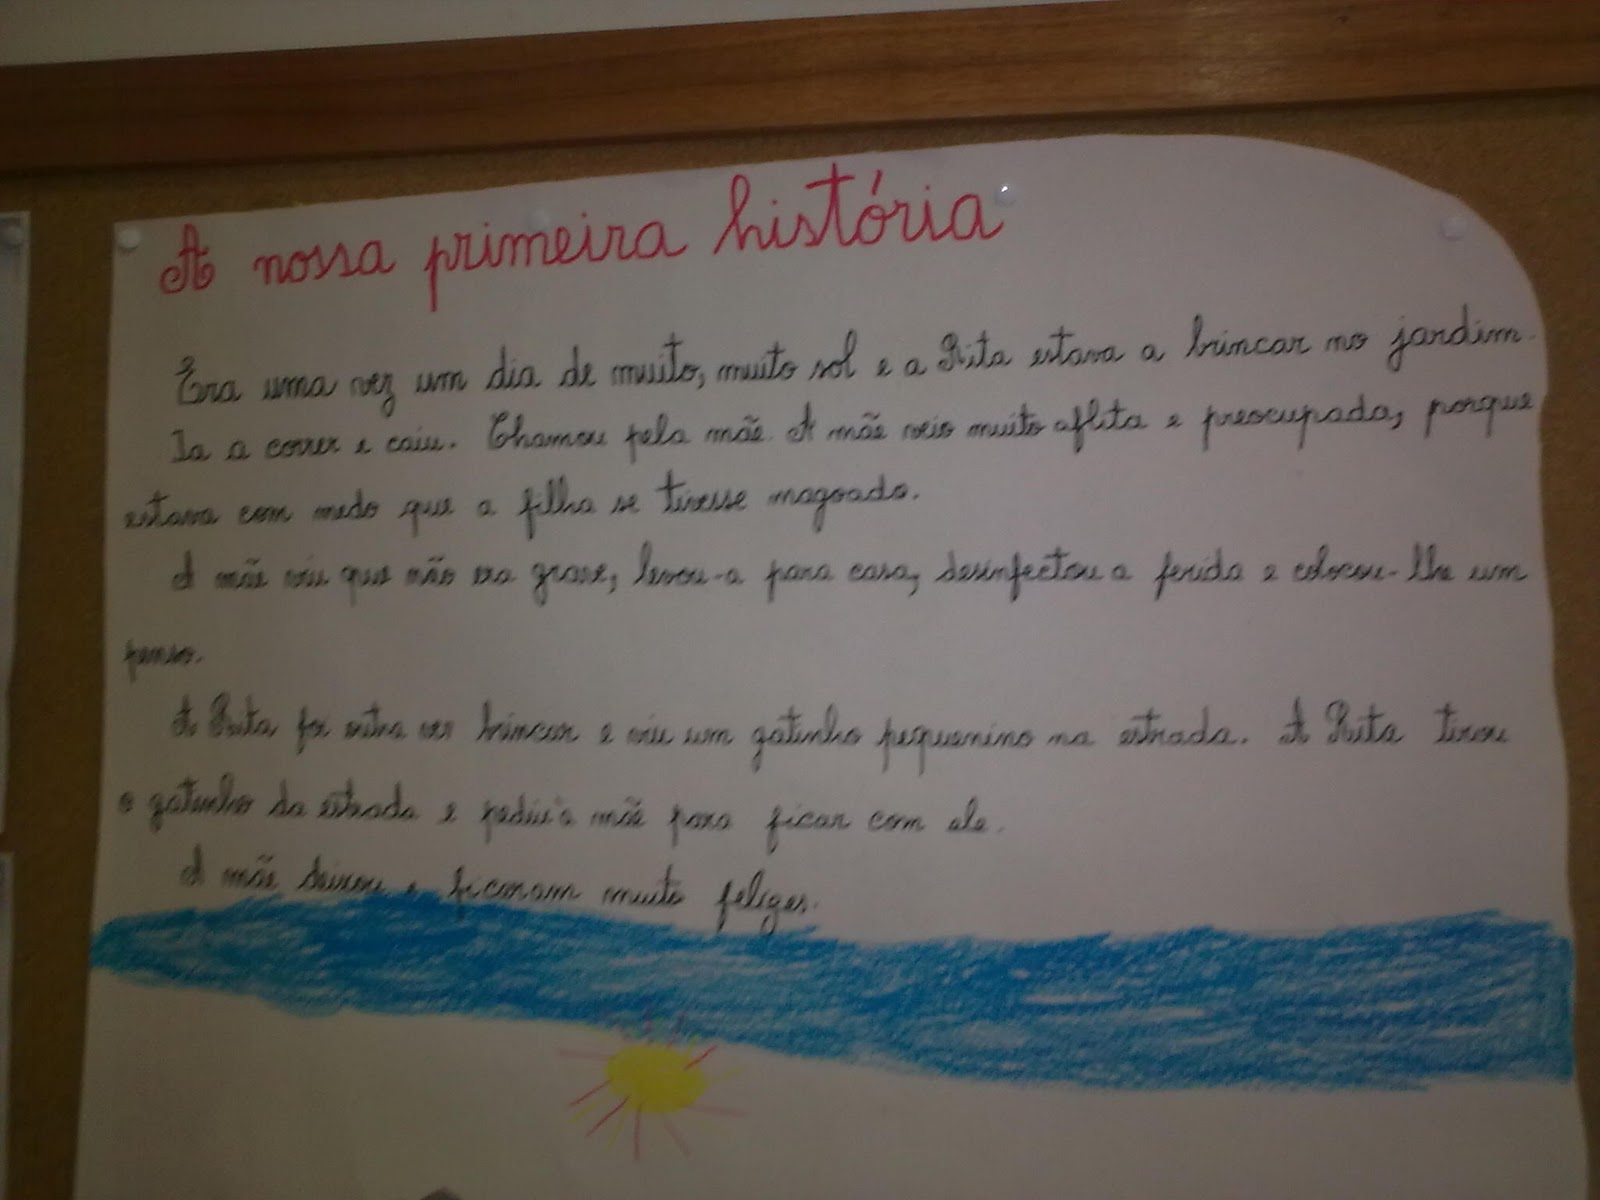 A nossa primeira história
Era uma vez um dia de muito, muito sol e a Rita estava a brincar no jardim.
Ia a correr e caiu. Chamou pela mãe. A mãe veio muito aflita e preocupada, porque
estava com medo que a filha se tivesse magoado.
A mãe viu que não era grave, levou-a para casa, desinfectou a ferida e colocou-lhe um
penso.
A Rita foi outra vez brincar e viu um gatinho pequenino na estrada. A Rita tirou
o gatinho da estrada e pediu à mãe para ficar com ele.
A mãe deixou e ficaram muito felizes.